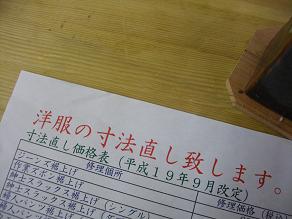 洋服の寸法直し致します。
寸法直し価格表(平成19年9月改定)
修理個所
修理価格
ジーンズ裾上げ
紳士ズボン裾上げ
紳士スラックス裾上げ(シングル)
婦人パンツ裾上げ